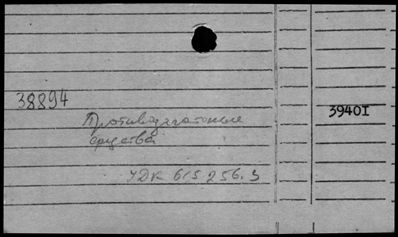 38894
39401
Противозачаточные
средства
УДК 615.256.3